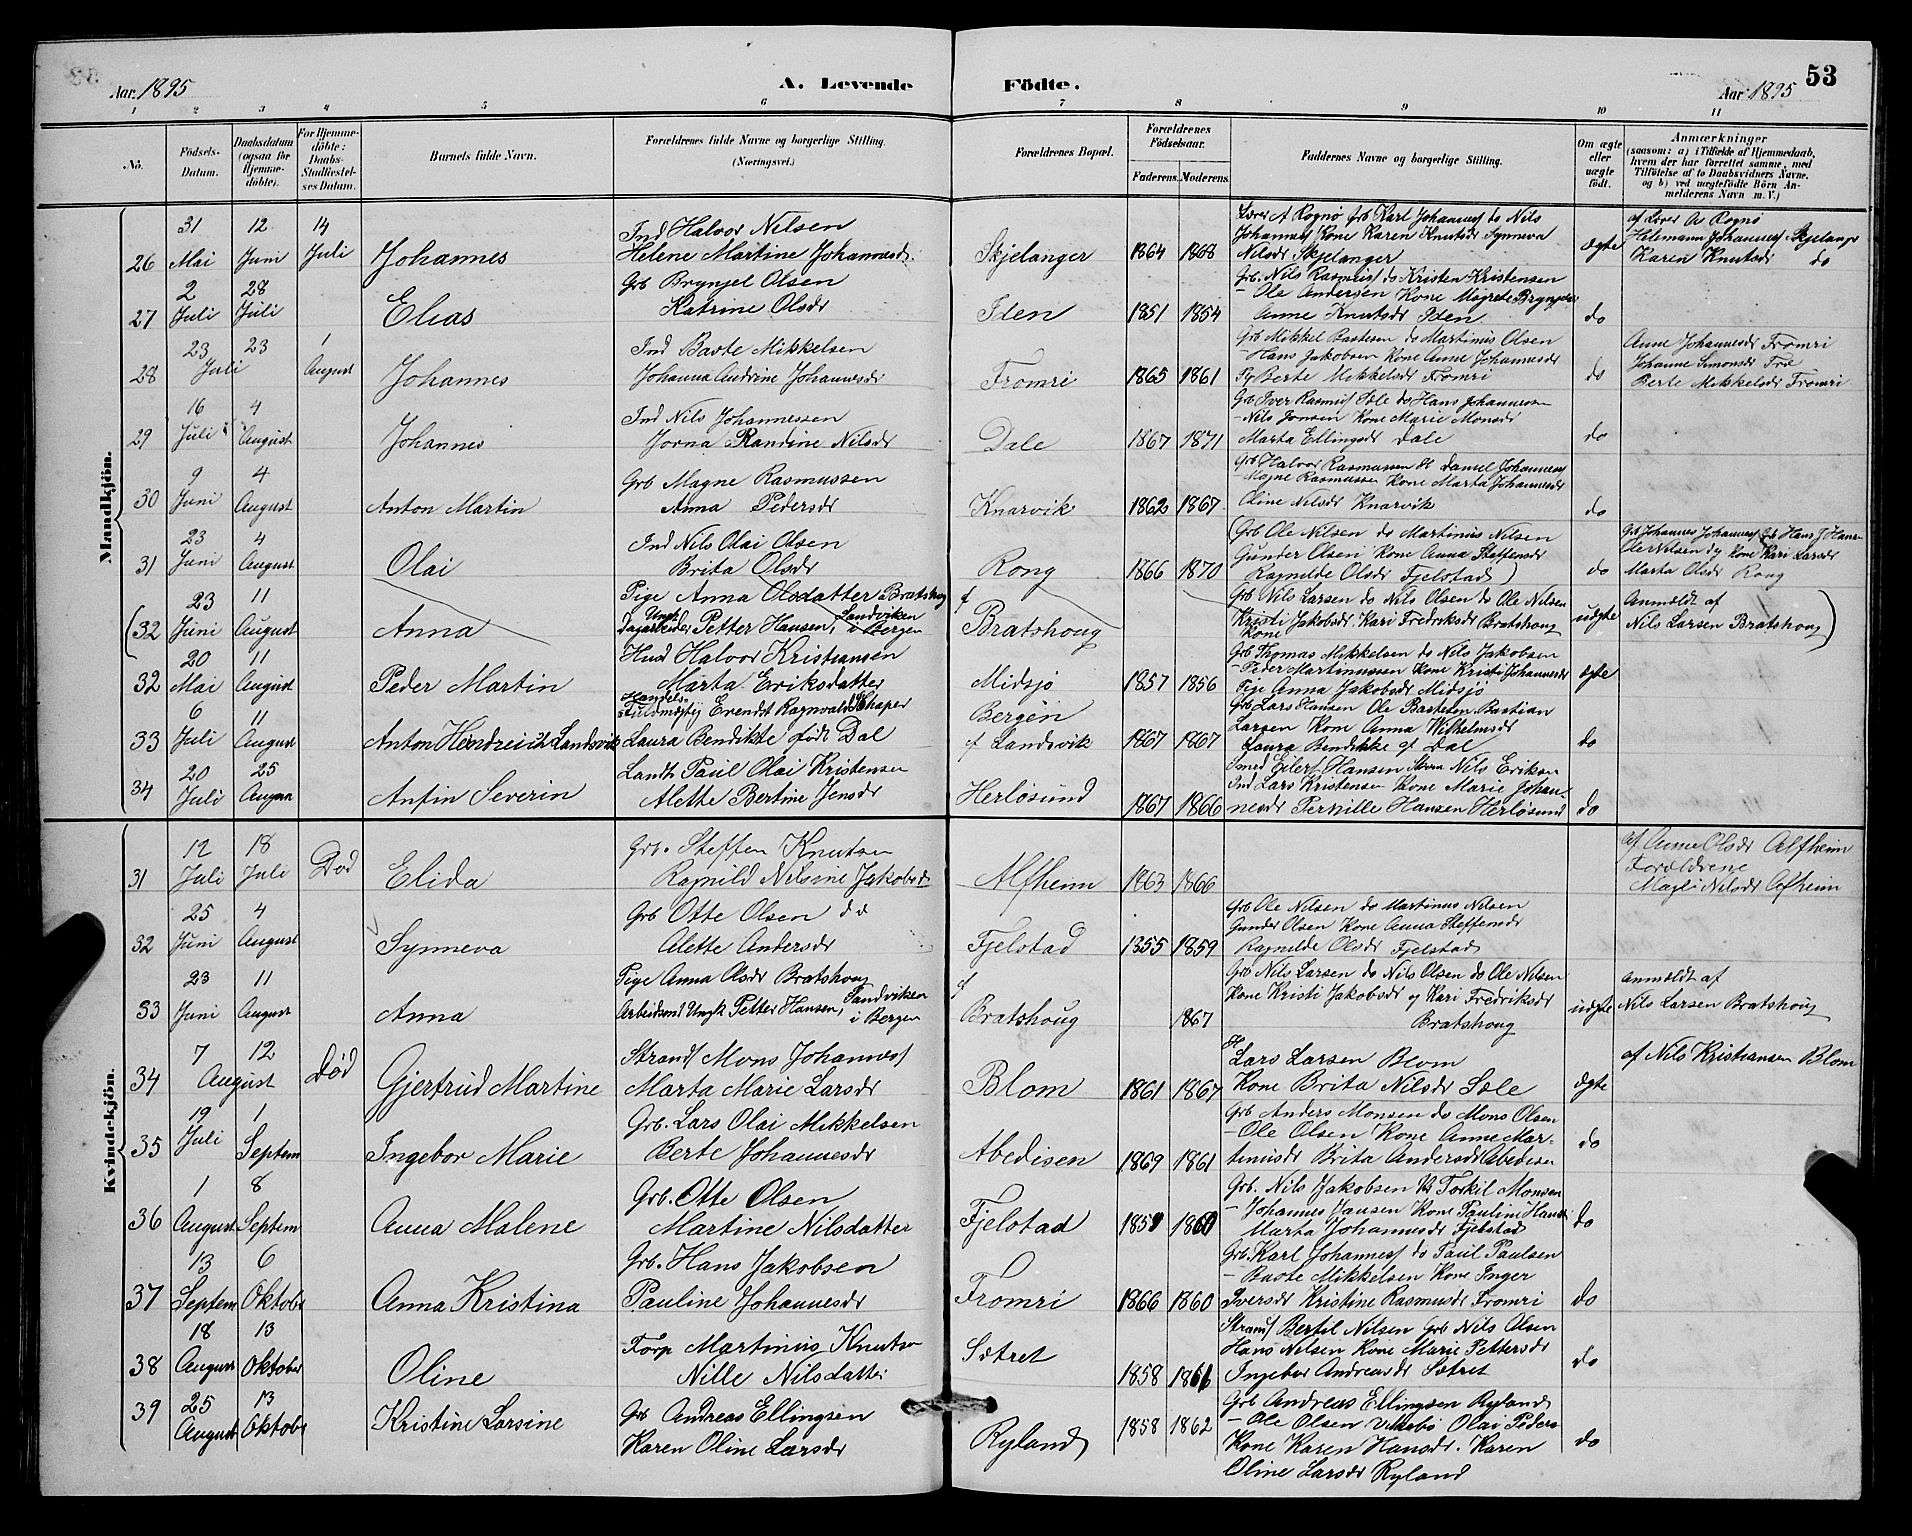 Aar. 1895
A. Levende
Födte.
Aar 1895
53
1 2 3 4 5 6 7 8 9 10 11
No.
Födsels-
Datum.
Daabsdatum
(ogsaa for
Hjemme-
döbte).
For Hjemme-
döbte:
Daabs-
Stadfæstel-
ses Datum.
Barnets fulde Navn.
Forældrenes fulde Navne og borgerlige Stilling.
(Næringsvei.)
Forældrenes Bopæl.
Forældrenes
Födselsaar.
Faderens. Moderens.
Faddernes Navne og borgerlige Stilling.
Om ægte
eller
uægte
født.
Anmærkninger
(saasom: a) i Tilfælde af Hjemmedaab,
hvem der har forrettet samme, med
Tilföielse af to Daabsvidners Navne,
og b) ved uægtefödte Börn An-
melderens Navn m. V.)
Mandkjön.
26
31
Mai
12
Juni
14
Juli
Johannes
Ind Halvor Nilsen
Helene Martine Johannesd.
Skjelanger
1864 1868
Lærer A Rognø Grb Karl Johannes do Nils
Johannes Kone Karen Knutsdr Synneva
Nilsdr Skjelanger
ægte
af Lærer As Rognø
Hilemann Johannes Skjelange
Karen Knutsdr do
27
2
Juli
28
Juli
Elias
Grb Brynjel Olsen
Katrine Olsdr
Iden
1851 1854
Grb. Nils Rasmus do Kristen Kristensen
- Ole Andersen Kone Magrete Brynjelsdr
Anne Knutsdr Iden
do
28
23 23
Juli
1
August
Johannes
Ind Baste Mikkelsen
Johanna Andrine Johannesdr
Fromri
1865 1861
Grb Mikkel Bastesen do Martinus Olsen
- Hans Jakobsen Kone Anne Johannesdr
Pg Berte Mikkelsdr Fromri
do
Anne Johannesdr Fromri
Johanne Simonsdr Frø
Berte Mikkelsdr Fromri
29
16
Juli
4
August
Johannes
Ind Nils Johannessen
Jorna Randine Nilsdr
Dale
1867 1871
Grb Iver Rasmus Sæle do Hans Johannessen
- Nils Jonsen Kone Marie Monsdr
Marta Ellingsdr Dale
do
30
9
Juni
4
August
Anton Martin
Grb Magne Rasmussen
Anna Pedersdr
Knarvik
1862 1867
Grb Halvor Rasmussen Daniel Johannes
- Mogne Rasmussen Kone Marta Johannesdr
Oline Nilsdr Knarvik
do
31
23
Juni
4
August
Olai
Ind Nils Olai Olsen
Brita Olsdr
Rong
1866 1870
(Grb Ole Nilsen do Martinus Nilsen
Gunder Olsen Kone Anna Steffensdr
Ragnilde Olsdr Fjelstad)
do
Grb Johannes Johannes Grb Hans J Hansen
Ole Nilsen og Kone Kari Larsdr
Marta Olsdr Rong
(32
23
Juni
11
August
Anna
Pige Anna Olsdatter Bratshoug
Ungk.
Dagarbeider Petter Hansen, Sandviken
i Bergen
Bratshoug
Grb Nils Larsen do Nils Olsen do Ole Nilsen
Kristi Jakobsdr Kari Fredriksdr Bratshoug
Kone
uægte
Anmeldt af
Nils Larsen Bratshoug)
32
20
Mai
11
August
Peder Martin
Husd Halvor Kristiansen
Marta Eriksdatter
Midsjø
1857 1856
Grb Thomas Mikkelsen do Nils Jakobsen
- Peder Martinussen Kone Kristi Johannesdr
Pige Anna Jakobsdr Midsjø
ægte
33
6
Juli
11
August
Anton Hendreich Landsvik
Handels
Fuldmægtig Evendt Ragnvald Schaper
Laura Bendikte født Dal
Bergen
af Landsvik
1867 1867
Grb Lars Hansen Ole Bastesen Bastian
Larsen Kone Anna Wilhelmsdr
Laura Bendikke af Dal
do
34
20
Juli
25
August
Anfin Severin
Landh Paul Olai Kristensen
Alette Bertine Jensdr
Herløsund
1867 1866
Smed Eilert Hansen Nils Eriksen
Ind Lars Kristensen Kone Marie Johan-
nesdr Pernille Hansen Herløsund
do
Kvindekjön.
31
12
Juli
18
Juli
Død
Elida
Grb. Steffen Knutsen
Ragnild Nilsine Jakobsd
Alfheim
1863 1866
af Anne Olsdr Alfheim
Forældrene
Magli Nilsdr Alfheim
32
25
Juni
4
August
Synneva
Grb Otte Olsen
Alette Andersdr
Fjelstad
1855 1859
Grb Ole Nilsen do Martinus Nilsen
Gunder Olsen Kone Anna Steffensdr
Ragnilde Olsdr Fjelstad
33
23
Juni
11
August
Anna
Pige Anna Olsdr Bratshoug
Arbeidsmd Ungk Petter Hansen, Sandviken
i Bergen
af
Bratshoug
1867
Grb Nils Larsen do Nils Olsen do Ole Nilsen
Kone Kristi Jakobsdr og Kari Fredriksdr
Bratshoug
uægte
anmeldt af
Nils Larsen Bratshoug
34
7 12
August
Død
Gjertrud Martine
Strands Mons Johannes
Marta Marie Larsdr
Blom
1861 1867
Lars Larsen Blom
Kone Brita Nilsdr Sæle
ægte
af Nils Kristiansen Blom
35
19
Juli
1
Septem
Ingebor Marie
Grb. Lars Olai Mikkelsen
Berte Johannesdr
Abedisen
1869 1861
Grb Anders Monsen do Mons Olsen
- Ole Olsen Kone Anne Mar-
tinusdr Brita Andersdr Abedisen
do
36
1
August
8
Septem
Anna Malene
Grb. Otte Olsen
Martine Nilsdatter
Fjelstad
Grb. Nils Jakobsen Torkil Monsen
- Johannes Jansen Kone Pauline Hansd
Marta Johannesdr Fjelstad
do
37
13
Septem
6
Oktobr
Anna Kristina
Grb. Hans Jakobsen
Pauline Johannesdr
Fromri
1866 1860
Grb. Karl Johannes do Paul Paulsen
- Baste Mikkelsen Kone Inger
Iversdr Kristine Rasmusdr Fromri
do
38
18
August
13
Oktober
Oline
Forp Martinus Knutsen
Nille Nilsdatter
Sætret
1858 1861
Strands Bertil Nilsen Grb Nils Olsen
Hans Nilsen Kone Marie Pettersdr
Ingebor Andreasdr Sætret
do
39
25
August
13
Oktobr
Kristine Larsine
Grb Andreas Ellingsen
Karen Oline Larsdr
Ryland
1858 1862
Grb Andreas Ellingsen Ryland
- Ole Olsen Vikebø Olai Peders
Kone Karen Hansdr. Karen
Oline Larsdr Ryland
do